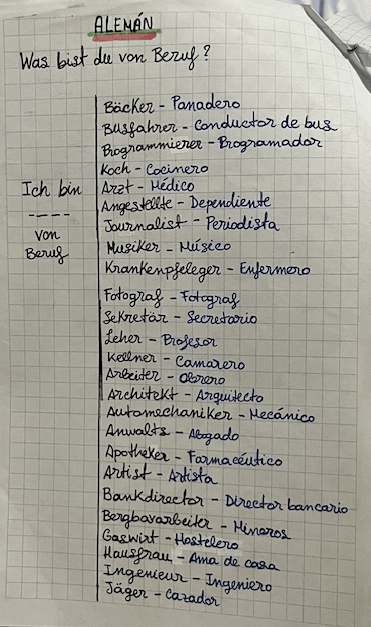 ALEMÁN
Was bist du von Beruf?
Bäcker - Panadero
Busfahrer - Conductor de bus
Programmierer - Programador
Koch - Cocinero
Ich bin
Arzt - Médico
Angestellte - Dependiente
----
Journalist - Periodista
von
Musiker - Músico
Beruf
Krankenpfeleger - Enfermero
Fotograf - Fotograf
Sekretär - Secretario
Leher - Profesor
Kellner - Camarero
Arbeiter - Obrero
Architekt - Arquitecto
Automechaniker - Mecánico
Anwalts - Abogado
Apotheker - Farmacéutico
Artist - Artista
Bankdirector - Director bancario
Bergbavarbeiter - Mineros
Gaswirt - Hostelero
Hausfrau - Ama de casa
Ingenieur - Ingeniero
Jäger - Cazador